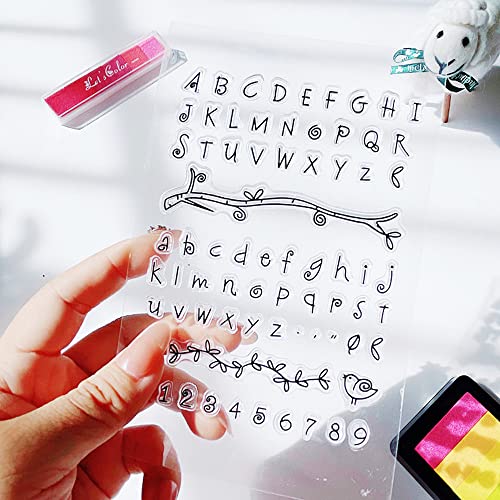 Let's Color
A B C D E F G H I
J K L M N O P Q R
S T U V W X Y Z &
a b c d e f g h i j
k l m n o p q r s t
u v w x y z . , ,, Ø &
1 2 3 4 5 6 7 8 9